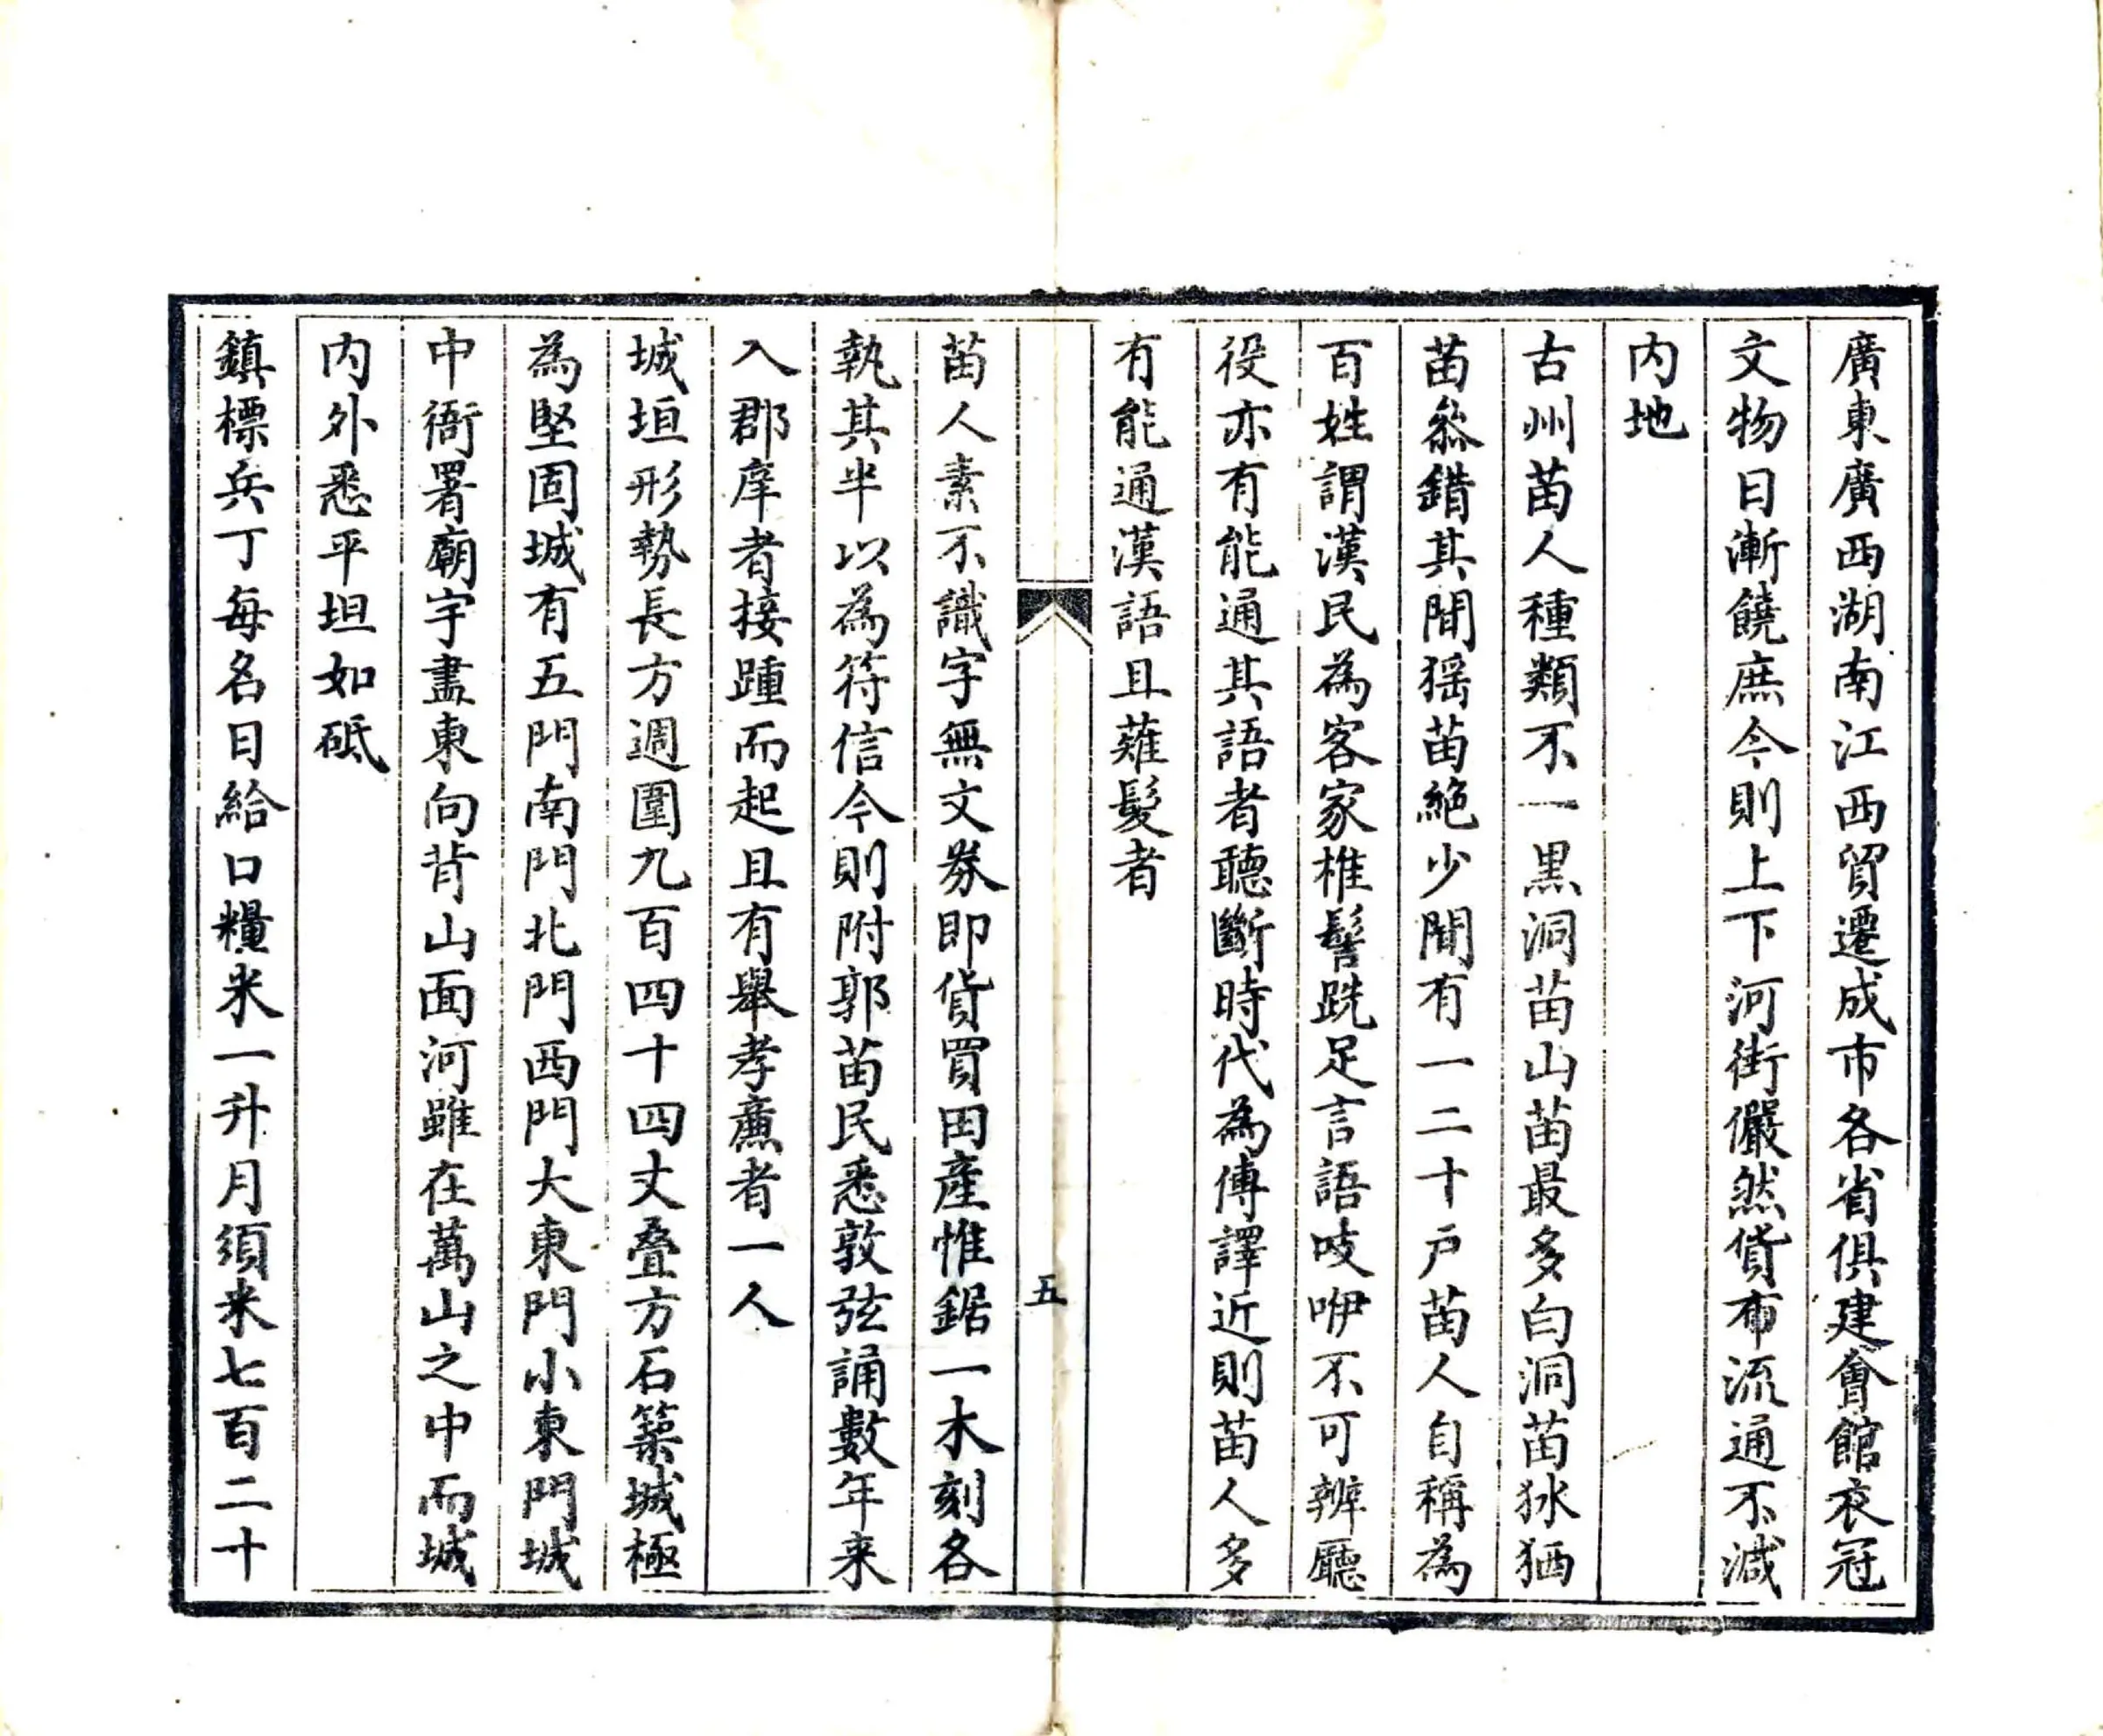 廣東廣西湖南江西貿遷成市各省俱建會館衣冠
文物日漸饒庶今則上下河街儼然貨布流通不減
内地
古州苗人種類不一黒洞苗山苗最多白洞苗狄猺
苗叅錯其間猺苗絶少聞有一二十戸苗人自稱為
百姓謂漢民為客家椎髻跣足言語吱咿不可辨廳
役亦有能通其語者聽斷時代為傳譯近則苗人多
有能通漢語且薙髮者
五
苗人素不識字無文券即貨買田產惟鋸一木刻各
執其半以為符信今則附郭苗民悉敦弦誦數年来
入郡庠者接踵而起且有舉孝廉者一人
城垣形勢長方週圍九百四十四丈叠方石築城極
為堅固城有五門南門北門西門大東門小東門城
中衙署廟宇盡東向背山面河雖在萬山之中而城
内外悉平坦如砥
鎮標兵丁每名日給口糧米一升月須米七百二十